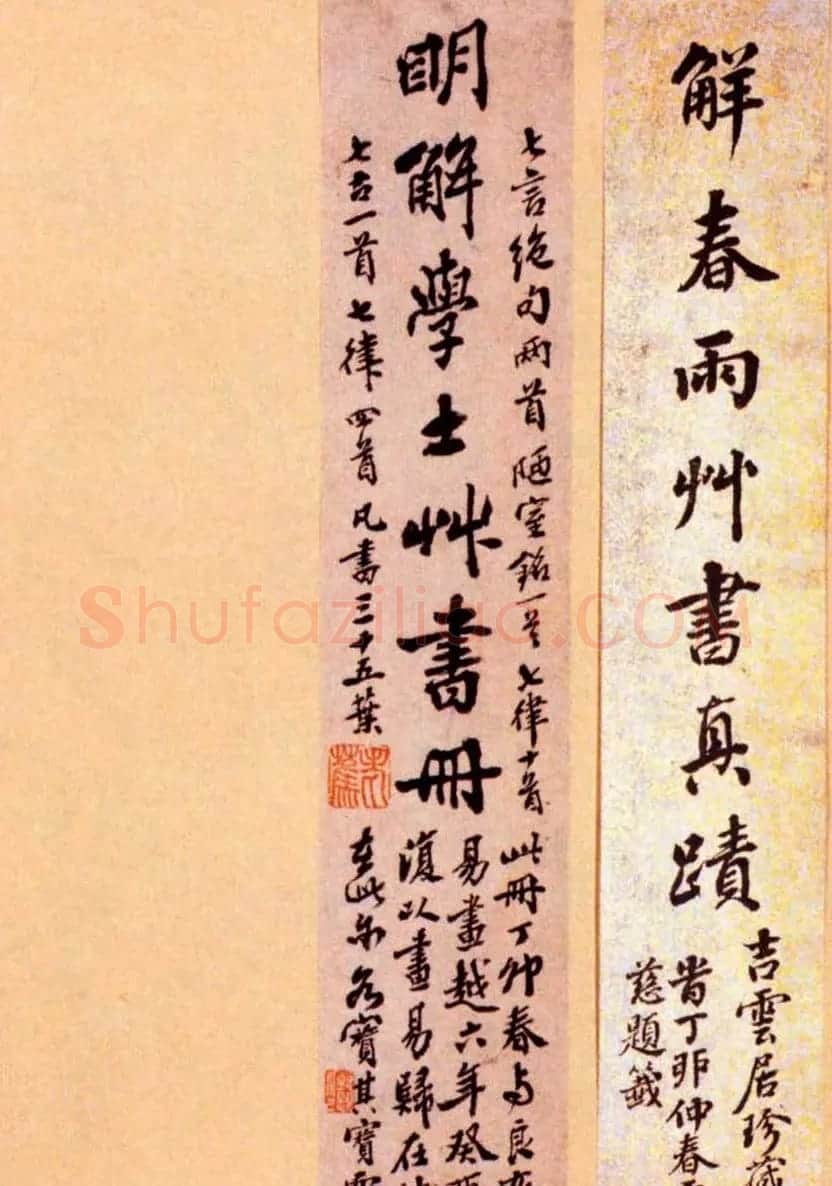 解春雨艸書真蹟
吉雲居珍藏
昔丁卯仲春
題籤
明解學士艸書冊
七言绝句兩首陋室銘一首七律十首
七古一首七律四首凡書三十五葉
此冊丁卯春与良
易畫越六年癸
復以畫易歸在
在此亦各寶其寶
Shufaziliao.COM